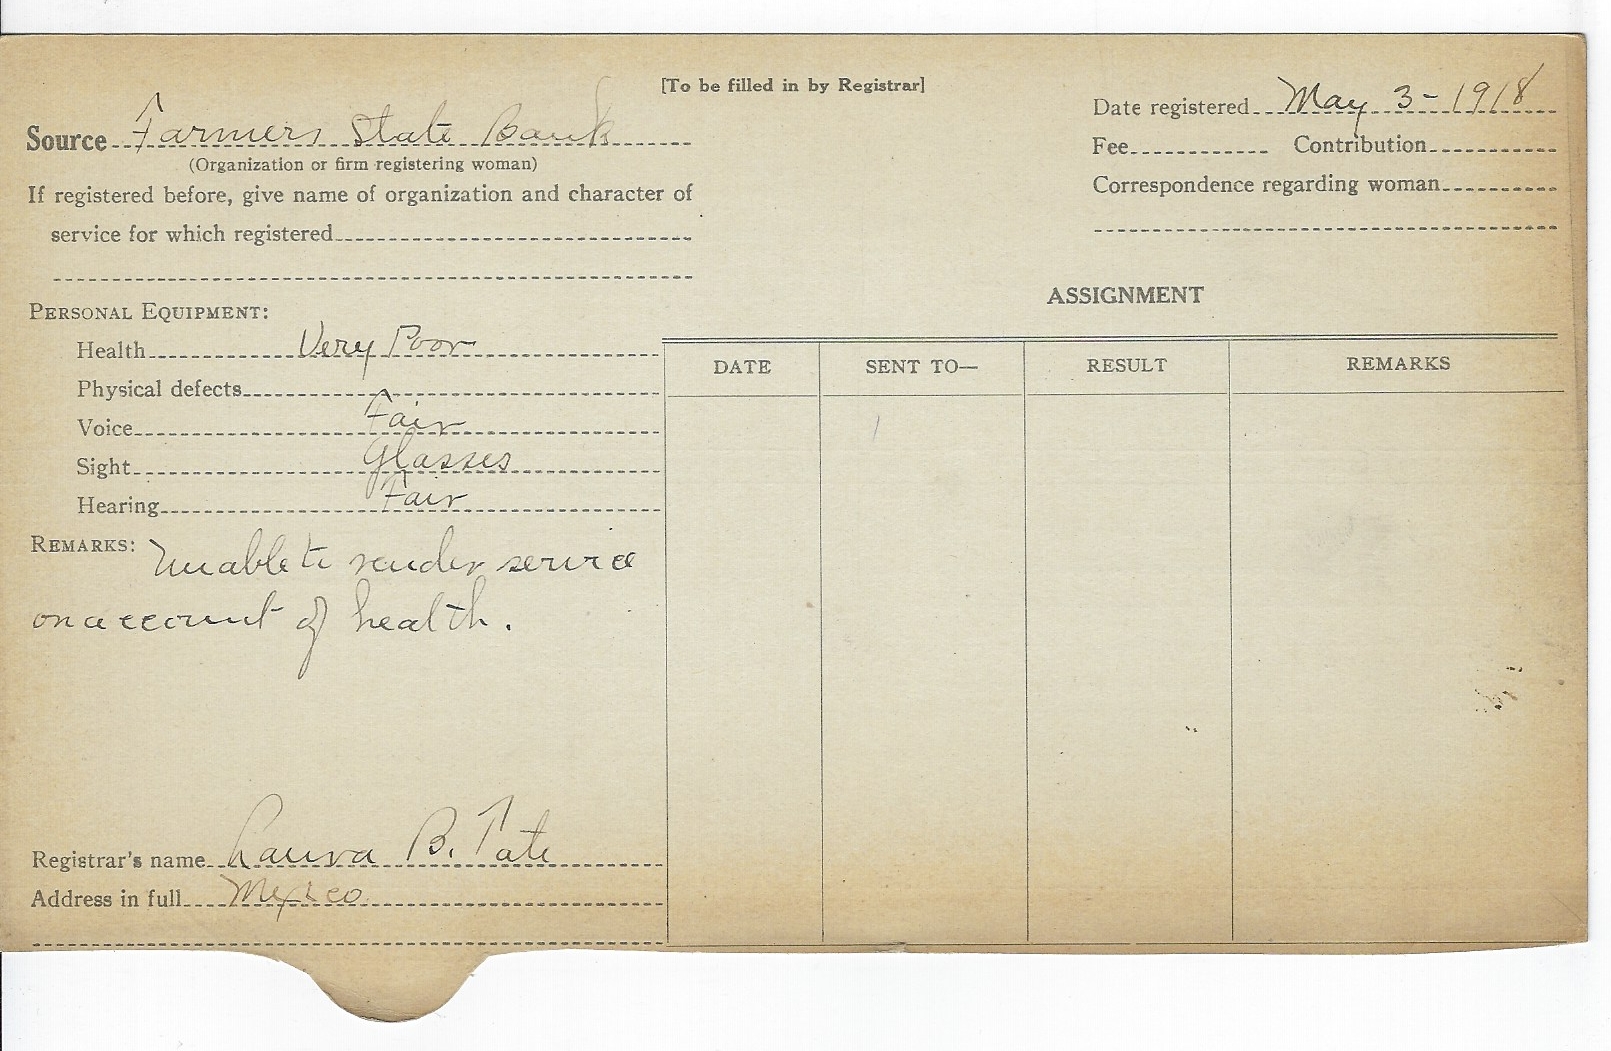 [To be filled in by Registrar]
Source Farmers State Bank
(Organization or firm registering woman)
If registered before, give name of organization and character of
service for which registered
Date registered May 3-1918
Fee Contribution
Correspondence regarding woman
PERSONAL EQUIPMENT:
Health Very Poor
Physical defects
Voice Fair
Sight Glasses
Hearing Fair
REMARKS: Unable to render service
on account of health.
Registrar's name Laura B. Tate
Address in full Mexico
ASSIGNMENT
DATE SENT TO— RESULT REMARKS